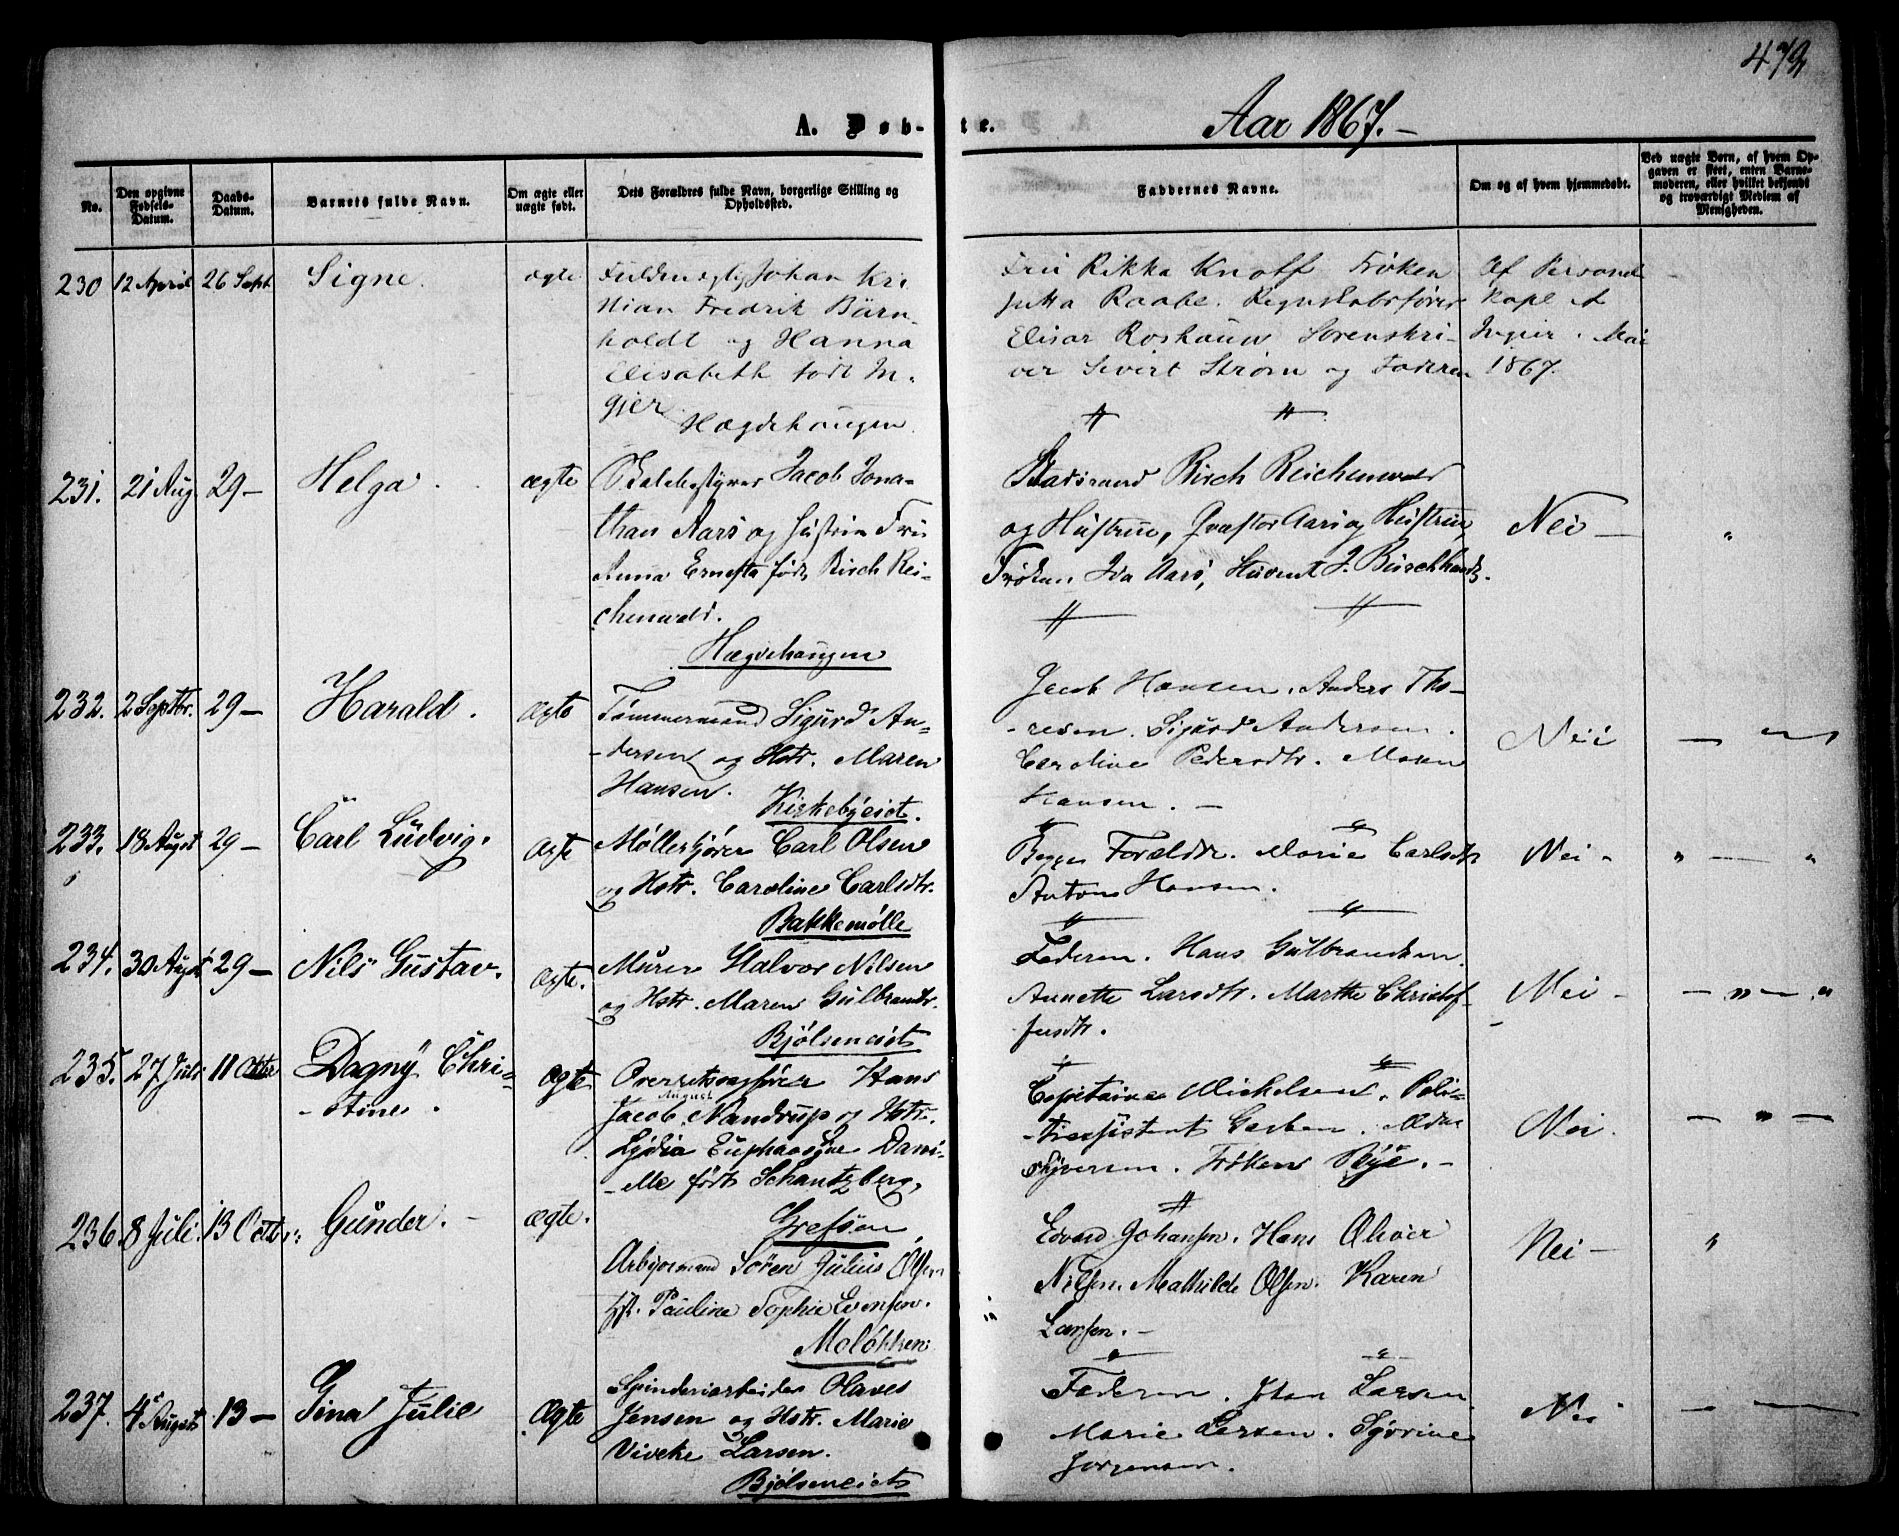 472
A. Døb-
te.
Aar 1867.-
No.
Den opgivne Fødsels-Datum.
Daabs-Datum.
Barnets fulde Navn.
Om ægte eller uægte født.
Dets Forældres fulde Navn, borgerlige Stilling og Opholdssted.
Faddernes Navne.
Om og af hvem hjemmedøbt.
Ved uægte Børn, af hvem Opgaven er skeet, enten Barnemoderen, eller hvilket bekjendt og troværdigt Medlem af Menigheden.
230 12 April 26 Sept. Signe. ægte
Fuldmægtig Johan Kri
stian Fredrik Bärn-
holdt og Hanna
Elisabeth født In-
gier.
Hægdehaugen.
Fru Rikka Knoff Frøken
Jetta Raabe. Regnskabsfører
Elisar Roshauw Sorenskri-
ver Sivert Strøm og Faderen
Af Personel
kapel et
Ingier. Mai
1867.
231. 21 Aug 29- Helga. ægte
Jacob Jona-
than Aars og Hustru Fru
Anna Ernesta født Birch Rei-
chenwald.
Hægdehaugen
Birch Reichenwald
og Hustru, Qvæstor Aars og Hustru,
Frøken Ida Aars, Student J. Buschhardt.
Nei - "
232. 2 Septbr. 29- Harald. Ægte
Tømmermand Sigurd An-
-dersen og Hstr. Maren
Hansen.
Kirkebyeiet.
Jacob Hansen. Anders Tho-
-resen. Sigurd Andersen.
Caroline Pedersdtr. Maren
Hansen. -
Nei
233. 18 Augst 29- Carl Ludvig. Ægte
Møllekjører Carl Olsen
og Hstr. Caroline Carlsdtr.
Bakkemølle
Begge Forældre. Marie Carlsdtr
Anton Hansen.
Nei - " - "
234. 30 Augst 29- Nils Gustav. Ægte.
Murer Halvor Nilsen
og Hstr. Maren Gulbrandr.
Bjølseneiet
Faderen. Hans Gulbrandsen.
Annette Larsdtr. Marthe Christof-
fersdtr.
Nei - - " - "
235. 27 Juli 11 Octbr Dagny Chri-
-stine. Ægte
Overretssagfører Hans
August
Jacob Nandrup og Hstr.
Lydia Euphrosyne Dani-
-elle født Schantzberg,
Grefsen
Capitaine Mickelsen. Poli-
-tiassistent Gerben.
Syversen. Frøken Rye. -
Nei. - " -
236. 8 Juli. 13 Octbr: Gunder. - ægte.
Arbejdsmand Søren Julius Olsen
Hst. Pauline Sophie Evensen.
Moløkken
Edvard Johansen. Hans Oliver
Nilsen. Mathilde Olsen. Karen
Larsen. -
Nei - "
237. 4 Augst 13- Gina Julie Ægte
Spinderiarbeider Olaves
Jensen og Hstr. Marie
Viveke Larsen.
Bjølseneiet
Faderen. Johan Larsen
Marie Larsen. Syverine
Jørgensen.
Nei